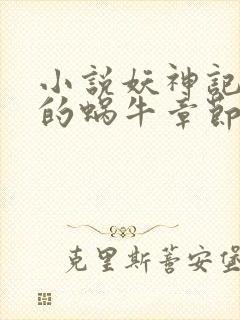 小說妖神記
的蝸牛章節
克里斯蒂安堡